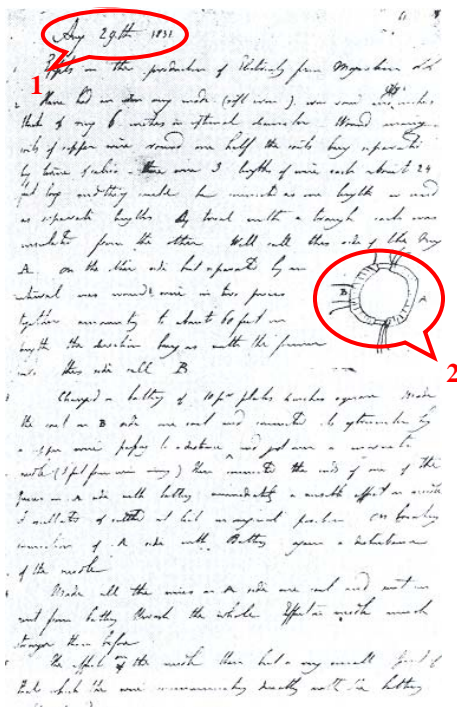 Aug 29th 1831
1
Expts on the production of Electricity from Magnetism
2 Have had an iron ring made (soft iron), iron round and inches
thick & ring 6 inches in external diameter. Wound many
coils of copper wire round one half the coils being separated
by twine & calico - there were 3 lengths of wire each about 24
feet long and they could be connected as one length or used
as separate lengths By trial with a trough each was
insulated from the other Will call this side of the ring
A. on the other side but separated by an
interval was wound wire in two pieces
together amounting to about 60 feet in
length the direction being as with the former
coils this side call B
B
A
2
Charged a battery of 10 pr plates 4 inches square Made
the coil on B side one coil and connected its extremities by
a copper wire passing to a distance and just over a magnetic
needle (3 feet from iron ring) then connected the ends of one of the
pieces on A side with battery immediately a sensible effect on needle
It oscillated & settled at last in original position on breaking
connection of A side with Battery again a disturbance
of the needle
Made all the wires on A side one coil and sent current
from battery through the whole Effect on needle much
stronger than before
The effect on the needle then but a very small part of
that which the wire communicating directly with the battery